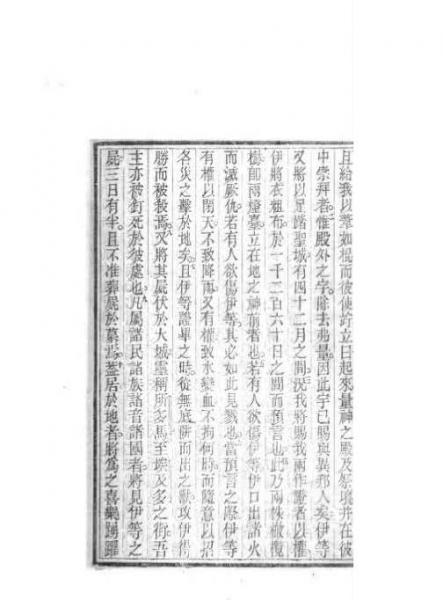 且給我以葦如棍而彼使許立曰起來量神之殿及祭壇并在彼
中崇拜者惟殿外之宇除去弗量因此宇已賜與異邦人矣伊等
又將以足踏聖城有四十二月之間況我將賜我兩作證者以權
伊將衣粗布於一千二百六十日之間而預言也此乃兩株橄欖
樹即兩燈臺立在地之神前者也若有人欲傷伊等伊口出諸火
而滅厥仇若有人欲傷伊等其必如此見戮也當預言之際伊等
有權以閉天不致降雨又有權致水變血不拘何時而隨意以招
各災之擊於地矣且伊等證畢之時從無底阱而出之獸攻伊得
勝而被殺焉又將其屍伏於大城靈稱所多馬至埃及多之街吾
主亦被釘死於彼處也凡屬諸民諸族諸音諸國者將見伊等之
屍三日有半且不准葬屍於墓焉蓋居於地者將為之喜樂踴躍